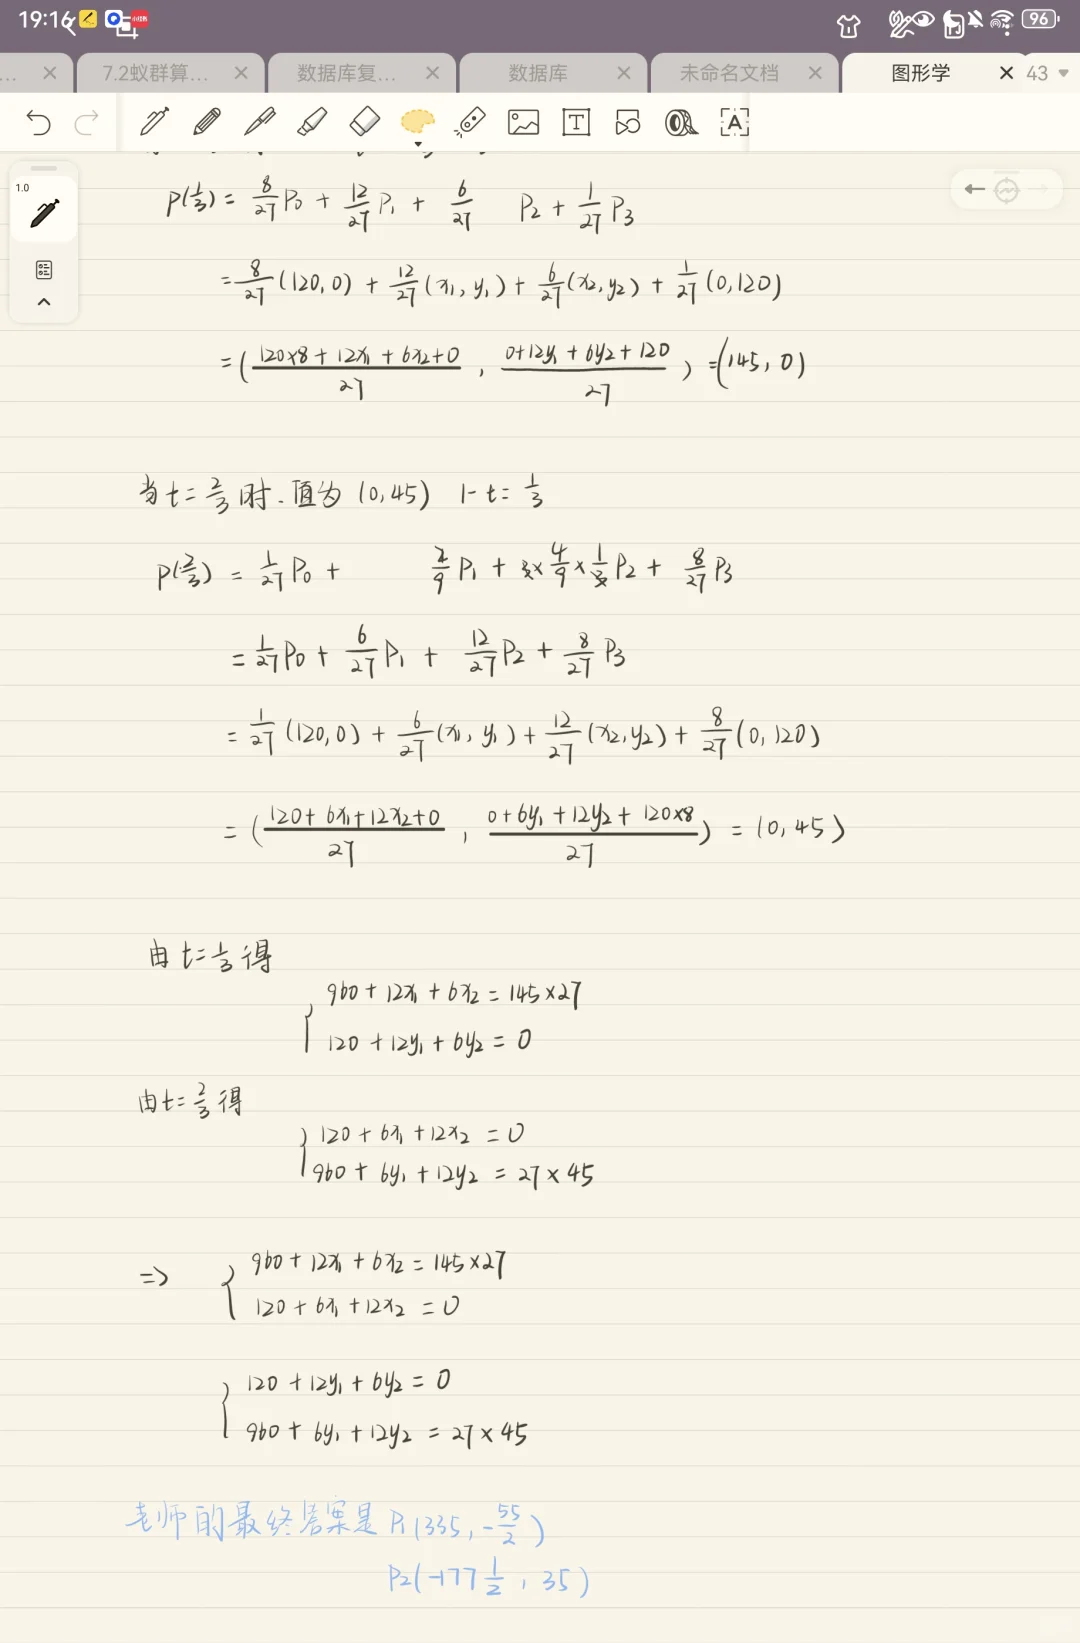 19:16 小红书 96
... × 7.2蚁群算... × 数据库复... × 数据库 × 未命名文档 × 图形学 × 43
T A
1.0
P(1/3) = 8/27 P₀ + 12/27 P₁ + 6/27 P₂ + 1/27 P₃
= 8/27 (120,0) + 12/27 (x₁, y₁) + 6/27 (x₂, y₂) + 1/27 (0,120)
= ( (120×8 + 12x₁ + 6x₂+0)/27 , (0+12y₁ + 6y₂ + 120)/27 ) = (145, 0)
当 t = 2/3 时. 值为 (0,45) 1-t = 1/3
P(2/3) = 1/27 P₀ + 2/9 P₁ + 3× 4/9 × 1/3 P₂ + 8/27 P₃
= 1/27 P₀ + 6/27 P₁ + 12/27 P₂ + 8/27 P₃
= 1/27 (120,0) + 6/27 (x₁, y₁) + 12/27 (x₂, y₂) + 8/27 (0,120)
= ( (120+6x₁+12x₂+0)/27 , (0+6y₁+12y₂+120×8)/27 ) = (0,45)
由 t = 1/3 得
{ 960 + 12x₁ + 6x₂ = 145×27
120 + 12y₁ + 6y₂ = 0
由 t = 2/3 得
{ 120 + 6x₁ + 12x₂ = 0
960 + 6y₁ + 12y₂ = 27×45
=> { 960 + 12x₁ + 6x₂ = 145×27
120 + 6x₁ + 12x₂ = 0
{ 120 + 12y₁ + 6y₂ = 0
960 + 6y₁ + 12y₂ = 27×45
老师的最终答案是 P₁(335, -55/2)
P₂(-177 1/2, 35)